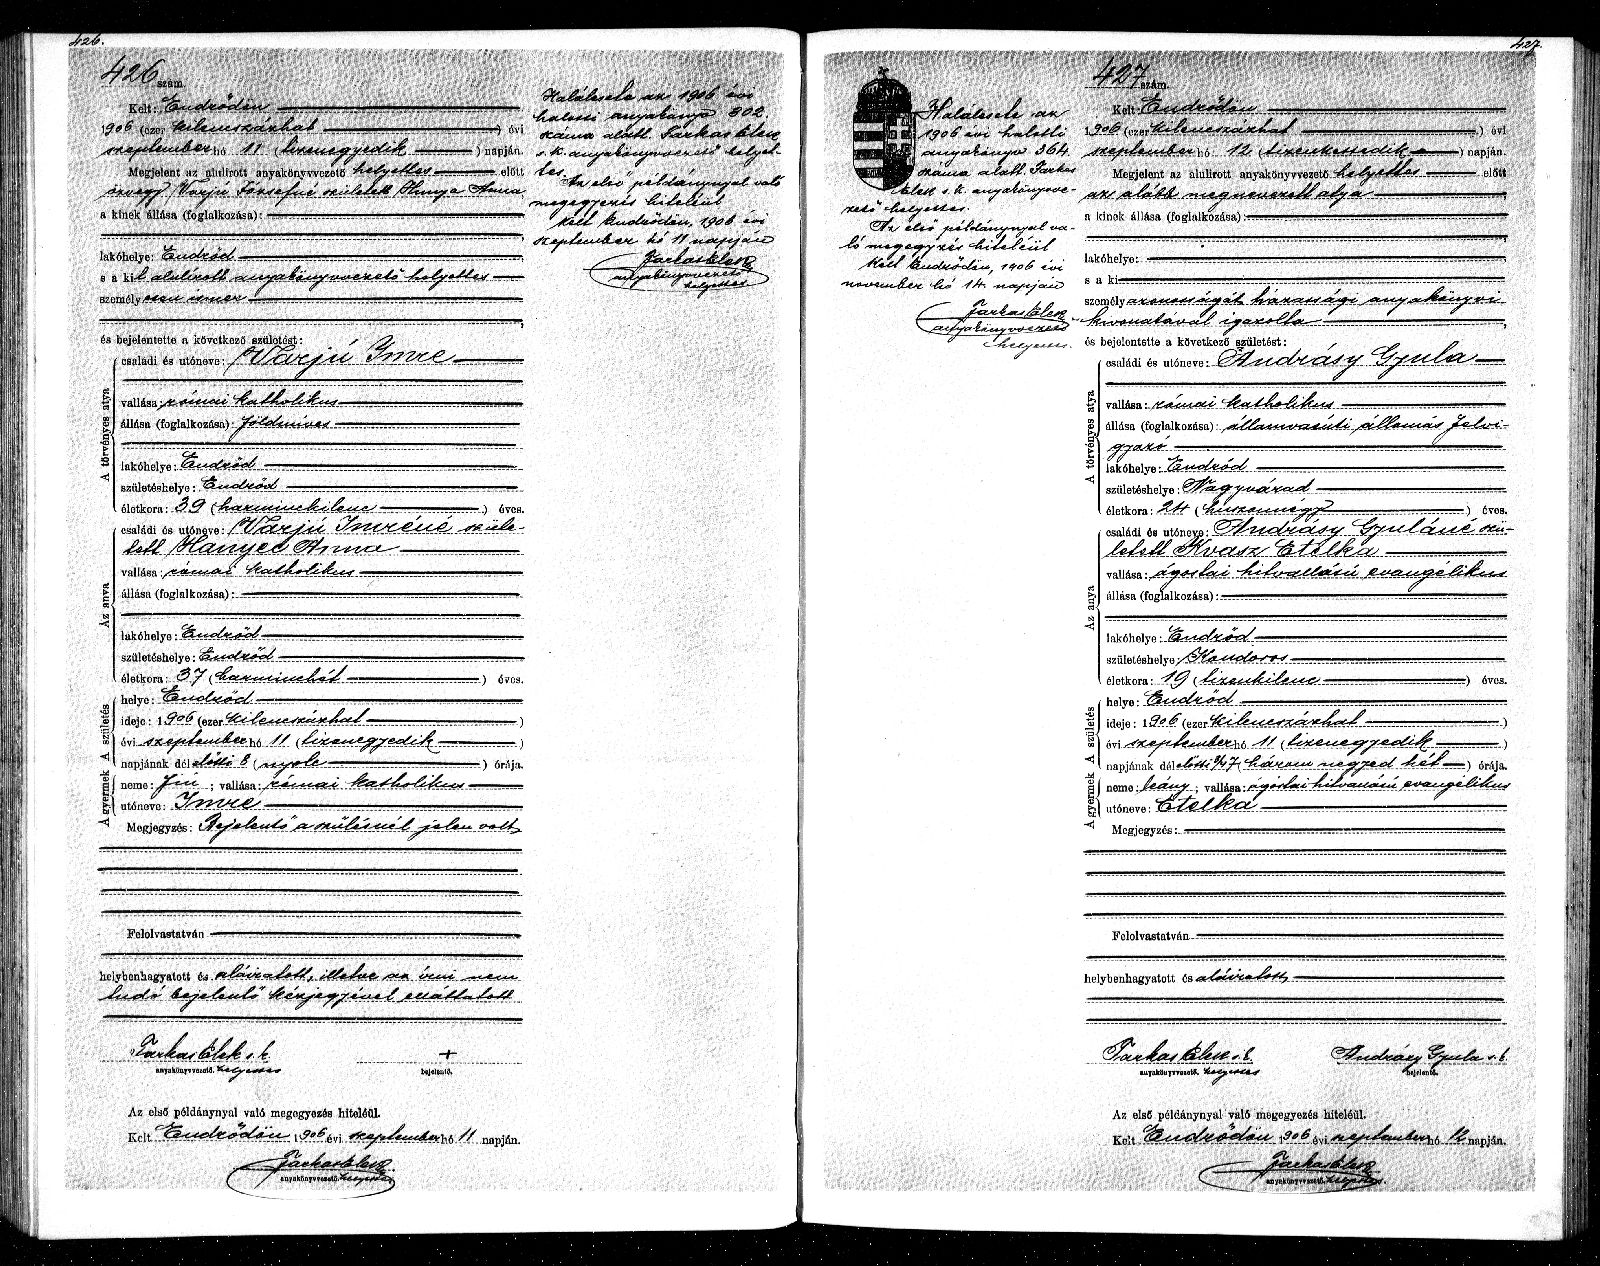 426.
426 szám.
Kelt: Endrődön
1906 (ezer kilencszázhat) évi
szeptember hó 11 (tizenegyedik) napján.
Megjelent az alulirott anyakönyvvezető helyettes előtt
özvegy Varjú Józsefné született Hunya Anna
a kinek állása (foglalkozása):
lakóhelye: Endrőd
s a kit alulirott anyakönyvvezető helyettes
személyesen ismer
és bejelentette a következő születést:
A törvényes atya
családi és utóneve: Varjú Imre
vallása: római katholikus
állása (foglalkozása): földmives
lakóhelye: Endrőd
születéshelye: Endrőd
életkora: 39 (harminckilenc) éves.
Az anya
családi és utóneve: Varjú Imréné szüle-
tett Hanyec Anna
vallása: római katholikus
állása (foglalkozása):
lakóhelye: Endrőd
születéshelye: Endrőd
életkora: 37 (harminchét) éves.
A születés
helye: Endrőd
ideje: 1906 (ezer kilencszázhat)
évi szeptember hó 11 (tizenegyedik)
napjának délelőtti 8 (nyolc) órája.
A gyermek
neme: fiú; vallása: római katholikus
utóneve: Imre
Megjegyzés: Bejelentő a szülésnél jelen volt
Felolvastatván
helybenhagyatott és aláiratott, illetve az irni nem
tudó bejelentő kézjegyével elláttatott
Farkas Elek s. k. +
anyakönyvvezető. helyettes bejelentő.
Az első példánynyal való megegyezés hiteléül.
Kelt Endrődön 1906 évi szeptember hó 11 napján.
Farkas Elek
anyakönyvvezető. helyettes
Halálesete az 1906 évi
halotti anyakönyv 302
száma alatt. Farkas Elek
s. k. anyakönyvvezető helyet-
tes.
Az első példánynyal való
megegyezés hiteléül
Kelt Endrődön, 1906 évi
szeptember hó 11 napján
Farkas Elek
anyakönyvvezető
helyettes
427.
Halálesete az
1906 évi halotti
anyakönyv 364
száma alatt. Farkas
Elek s. k. anyakönyvve-
zető helyettes.
Az első példánynyal va-
ló megegyezés hiteléül
Kelt Endrődön, 1906 évi
november hó 14 napján
Farkas Elek
anyakönyvvezető
helyettes.
427 szám.
Kelt: Endrődön
1906 (ezer kilencszázhat) évi
szeptember hó 12 (tizenkettedik) napján.
Megjelent az alulirott anyakönyvvezető helyettes előtt
az alább megnevezett atya
a kinek állása (foglalkozása):
lakóhelye:
s a ki
személyazonosságát házassági anyakönyvi
kivonatával igazolta
és bejelentette a következő születést:
A törvényes atya
családi és utóneve: Andrásy Gyula
vallása: római katholikus
állása (foglalkozása): államvasúti állomás felvi-
gyazó
lakóhelye: Endrőd
születéshelye: Nagyvárad
életkora: 24 (huszonnégy) éves.
Az anya
családi és utóneve: Andrásy Gyuláné szü-
letett Kvasz Etelka
vallása: ágostai hitvallású evangélikus
állása (foglalkozása):
lakóhelye: Endrőd
születéshelye: Kondoros
életkora: 19 (tizenkilenc) éves.
A születés
helye: Endrőd
ideje: 1906 (ezer kilencszázhat)
évi szeptember hó 11 (tizenegyedik)
napjának délelőtti 3/4 7 (három negyed hét) órája.
A gyermek
neme: leány; vallása: ágostai hitvallású evangélikus
utóneve: Etelka
Megjegyzés:
Felolvastatván
helybenhagyatott és aláiratott,
Farkas Elek s. k. Andrásy Gyula s. k.
anyakönyvvezető. helyettes bejelentő.
Az első példánynyal való megegyezés hiteléül.
Kelt Endrődön 1906 évi szeptember hó 12 napján.
Farkas Elek
anyakönyvvezető. helyettes.